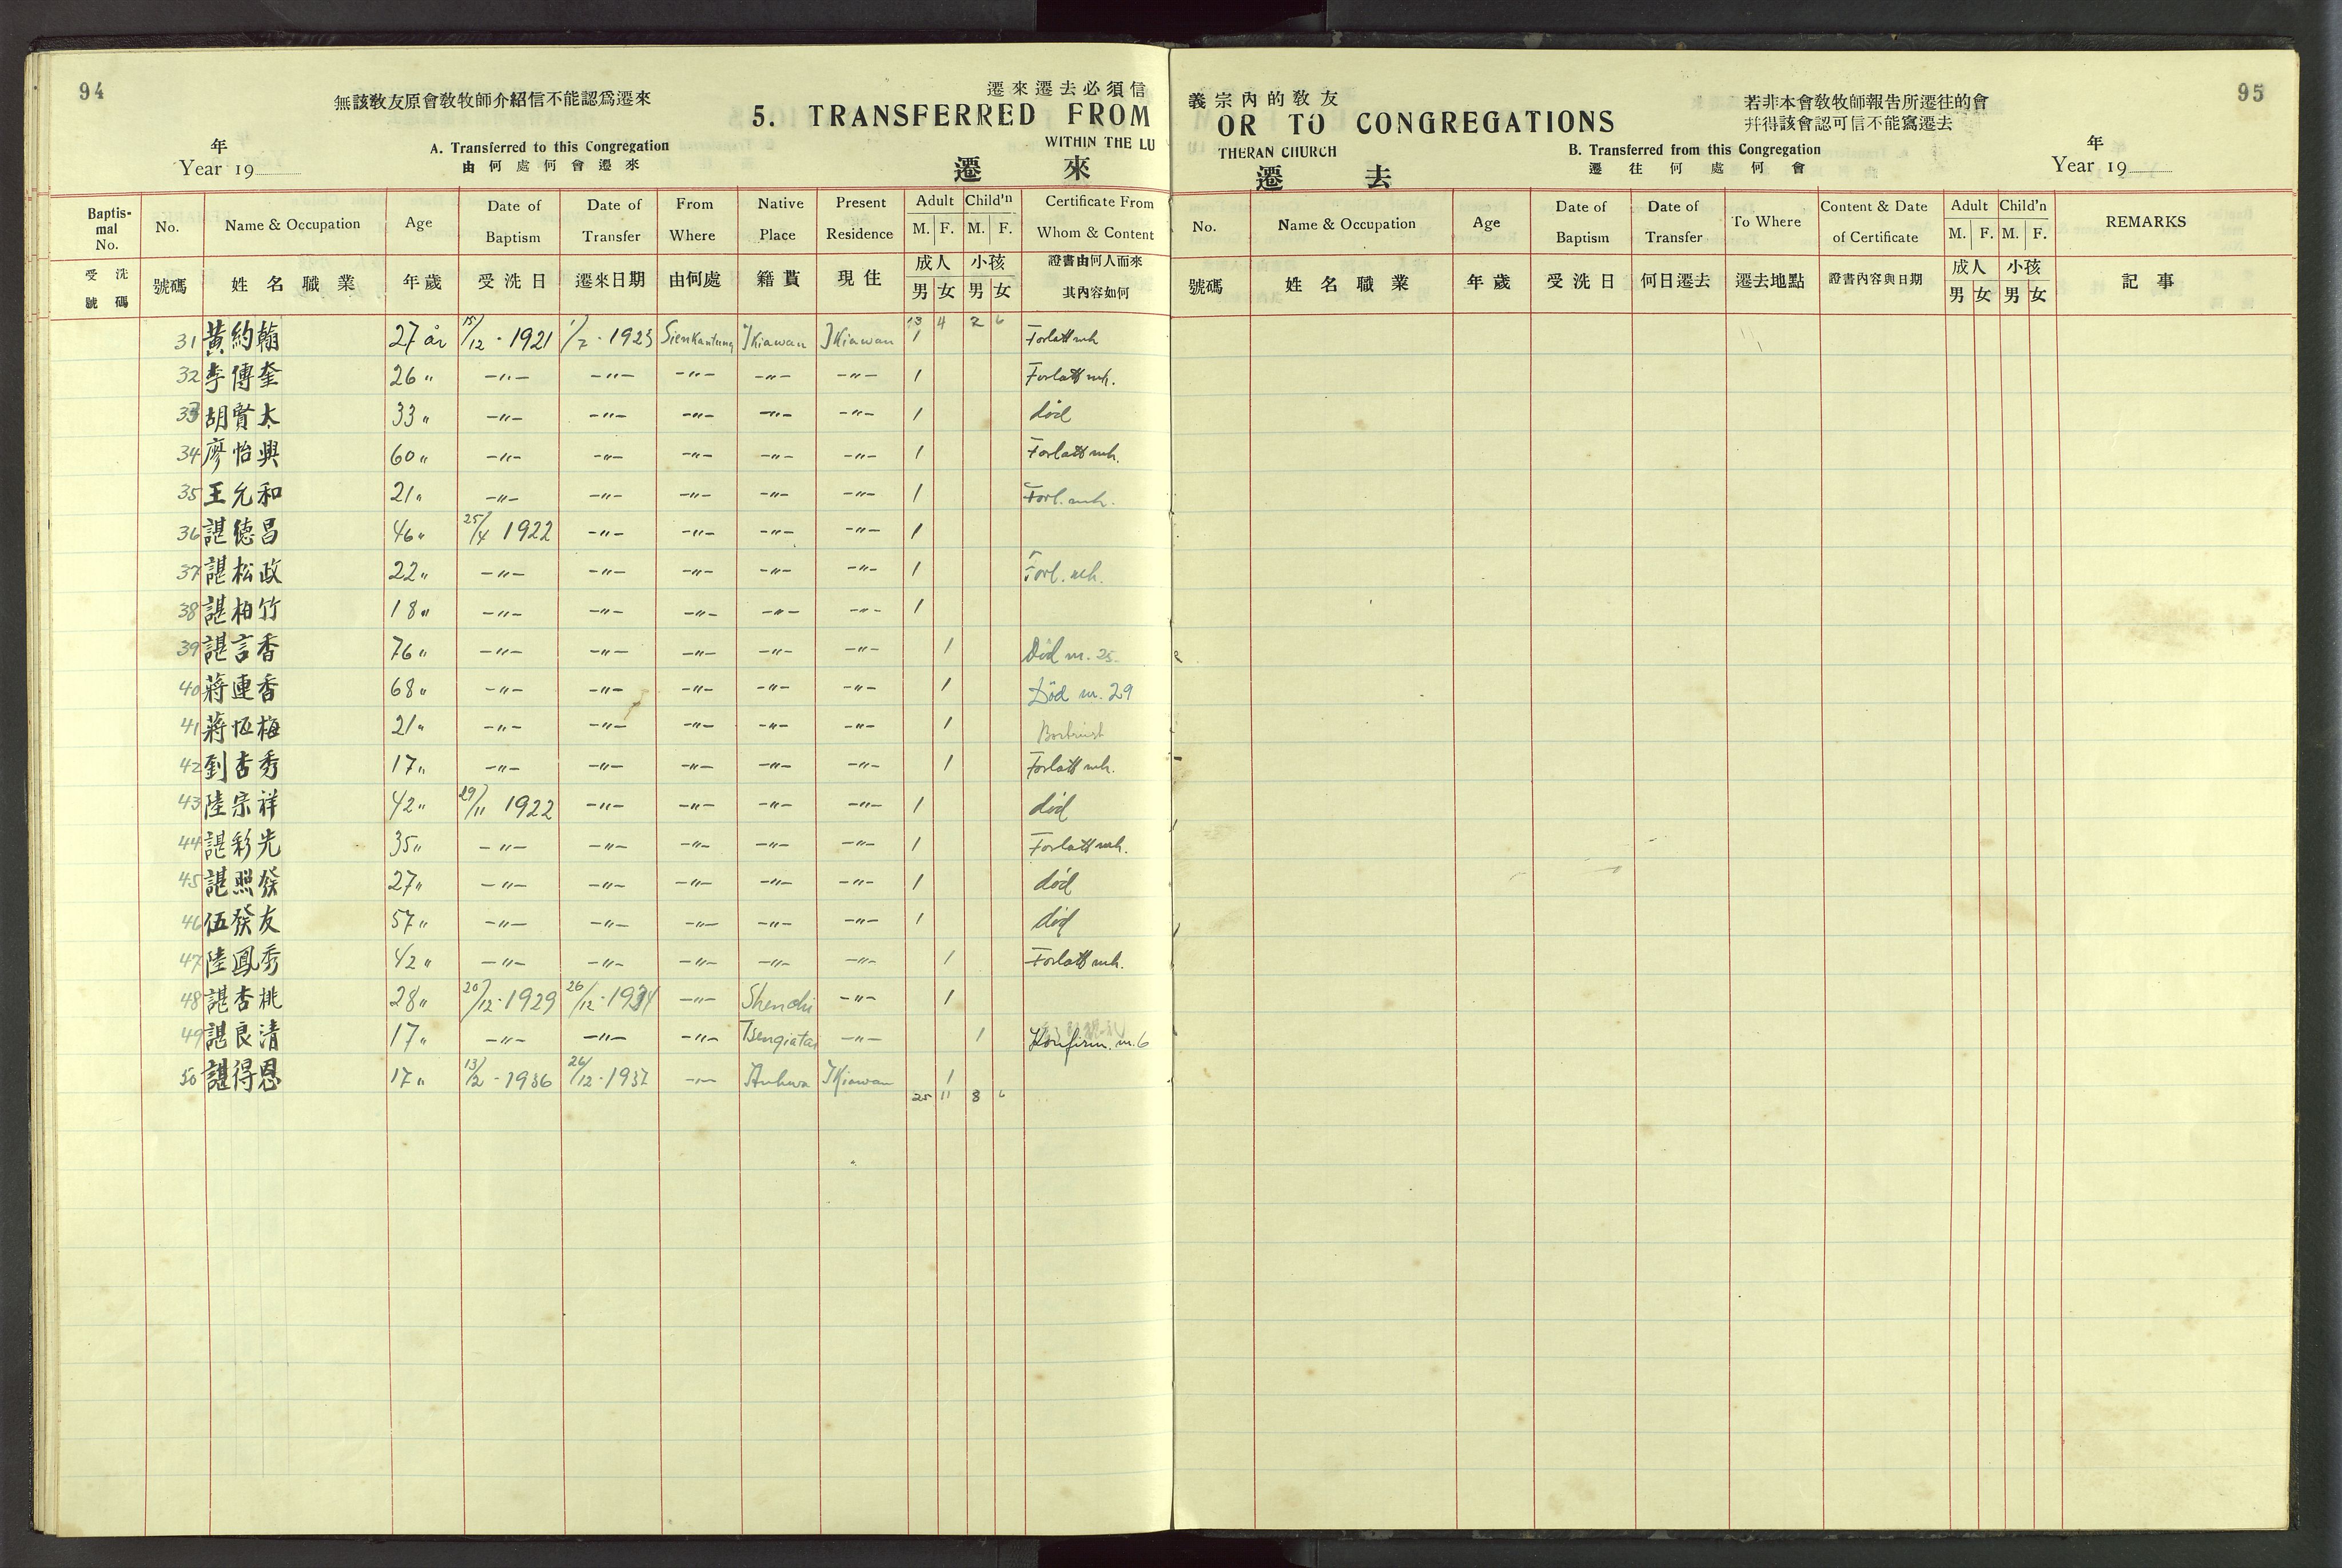 94
無該教友原會教牧師介紹信不能認爲遷來
遷來遷去必須信
5. TRANSFERRED FROM
WITHIN THE LU
年
Year 19
A. Transferred to this Congregation
由何處何會遷來
遷來
Baptismal No. No. Name & Occupation Age Date of Baptism Date of Transfer From Where Native Place Present Residence Adult M. F. Child'n M. F. Certificate From Whom & Content
受洗號碼 號碼 姓名職業 年歲 受洗日 遷來日期 由何處 籍貫 現住 成人 男 女 小孩 男 女 證書由何人而來其內容如何
13 4 2 6
31 黃約翰 27 år 15/12 - 1921 1/7 - 1923 Sienkantung Tkiawan Tkiawan 1 Forlatt mh
32 李傳奎 26 " -"- -"- -"- -"- -"- 1 Forlatt mh.
33 胡賢太 33 " -"- -"- -"- -"- -"- 1 död
34 廖怡興 60 " -"- -"- -"- -"- -"- 1 Forlatt mh.
35 王允和 21 " -"- -"- -"- -"- -"- 1 Forl. mh.
36 諶德昌 46 " 25/4 1922 -"- -"- -"- -"- 1
37 諶松政 22 " -"- -"- -"- -"- -"- 1 Forl. mh.
38 諶柏竹 18 " -"- -"- -"- -"- -"- 1
39 諶言香 76 " -"- -"- -"- -"- -"- 1 Död nr. 25.
40 蔣連香 68 " -"- -"- -"- -"- -"- 1 Död nr. 29
41 蔣恆梅 21 " -"- -"- -"- -"- -"- 1
42 劉杏秀 17 " -"- -"- -"- -"- -"- 1 Forlatt mh.
43 陸宗祥 42 " 29/11 1922 -"- -"- -"- -"- 1 död
44 諶彩光 35 " -"- -"- -"- -"- -"- 1 Forlatt mh.
45 諶照發 27 " -"- -"- -"- -"- -"- 1 död
46 伍發友 57 " -"- -"- -"- -"- -"- 1 död
47 陸鳳秀 42 " -"- -"- -"- -"- -"- 1 Forlatt mh.
48 諶杏桃 28 " 20/12 - 1929 26/12 - 1934 -"- Shenchi -"- 1
49 諶良清 17 " -"- -"- -"- Tsengiatai -"- 1 Konfirm. nr. 6
50 諶得恩 17 " 13/2 - 1936 26/12 - 1937 -"- Anhwa Tkiawan 1
25 11 8 6
95
義宗內的教友
OR TO CONGREGATIONS
THERAN CHURCH
若非本會教牧師報告所遷往的會
幷得該會認可信不能寫遷去
B. Transferred from this Congregation
遷往何處何會
年
Year 19
遷去
No. Name & Occupation Age Date of Baptism Date of Transfer To Where Content & Date of Certificate Adult M. F. Child'n M. F. REMARKS
號碼 姓名職業 年歲 受洗日 何日遷去 遷去地點 證書內容與日期 成人 男 女 小孩 男 女 記事